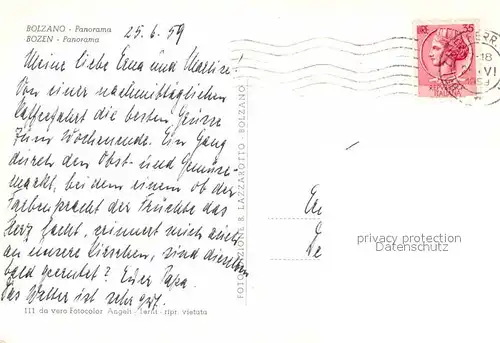 BOLZANO - Panorama
BOZEN - Panorama
25.6.59
Meine liebe Erna und Marlise!
Von einer nachmittäglichen
Kaffeefahrt die besten Grüsse
zum Wochenende. Ein Gang
durch den Obst- und Gemüse-
markt, bei dem einem ob der
Farbenpracht der Früchte das
Herz lacht, erinnert mich auch
an unsere Kirschen, sind dieselben
bald geerntet? Euer Papa.
Das Wetter ist sehr gut.
111 da vero Fotocolor Angeli - Terni - ripr. vietata
FOTOEDIZIONE B. LAZZAROTTO - BOLZANO
LIRE 35
ITALIANE
-18
VI
1959
privacy protection
Datenschutz